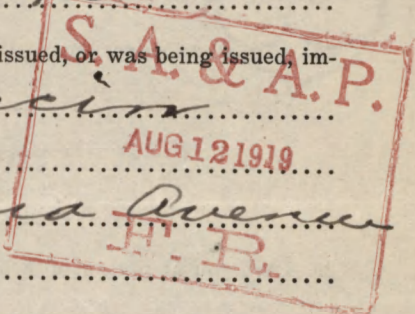 issued, or was being issued, im-
S. A. & A. P.
AUG 12 1919
Avenue
F. R.